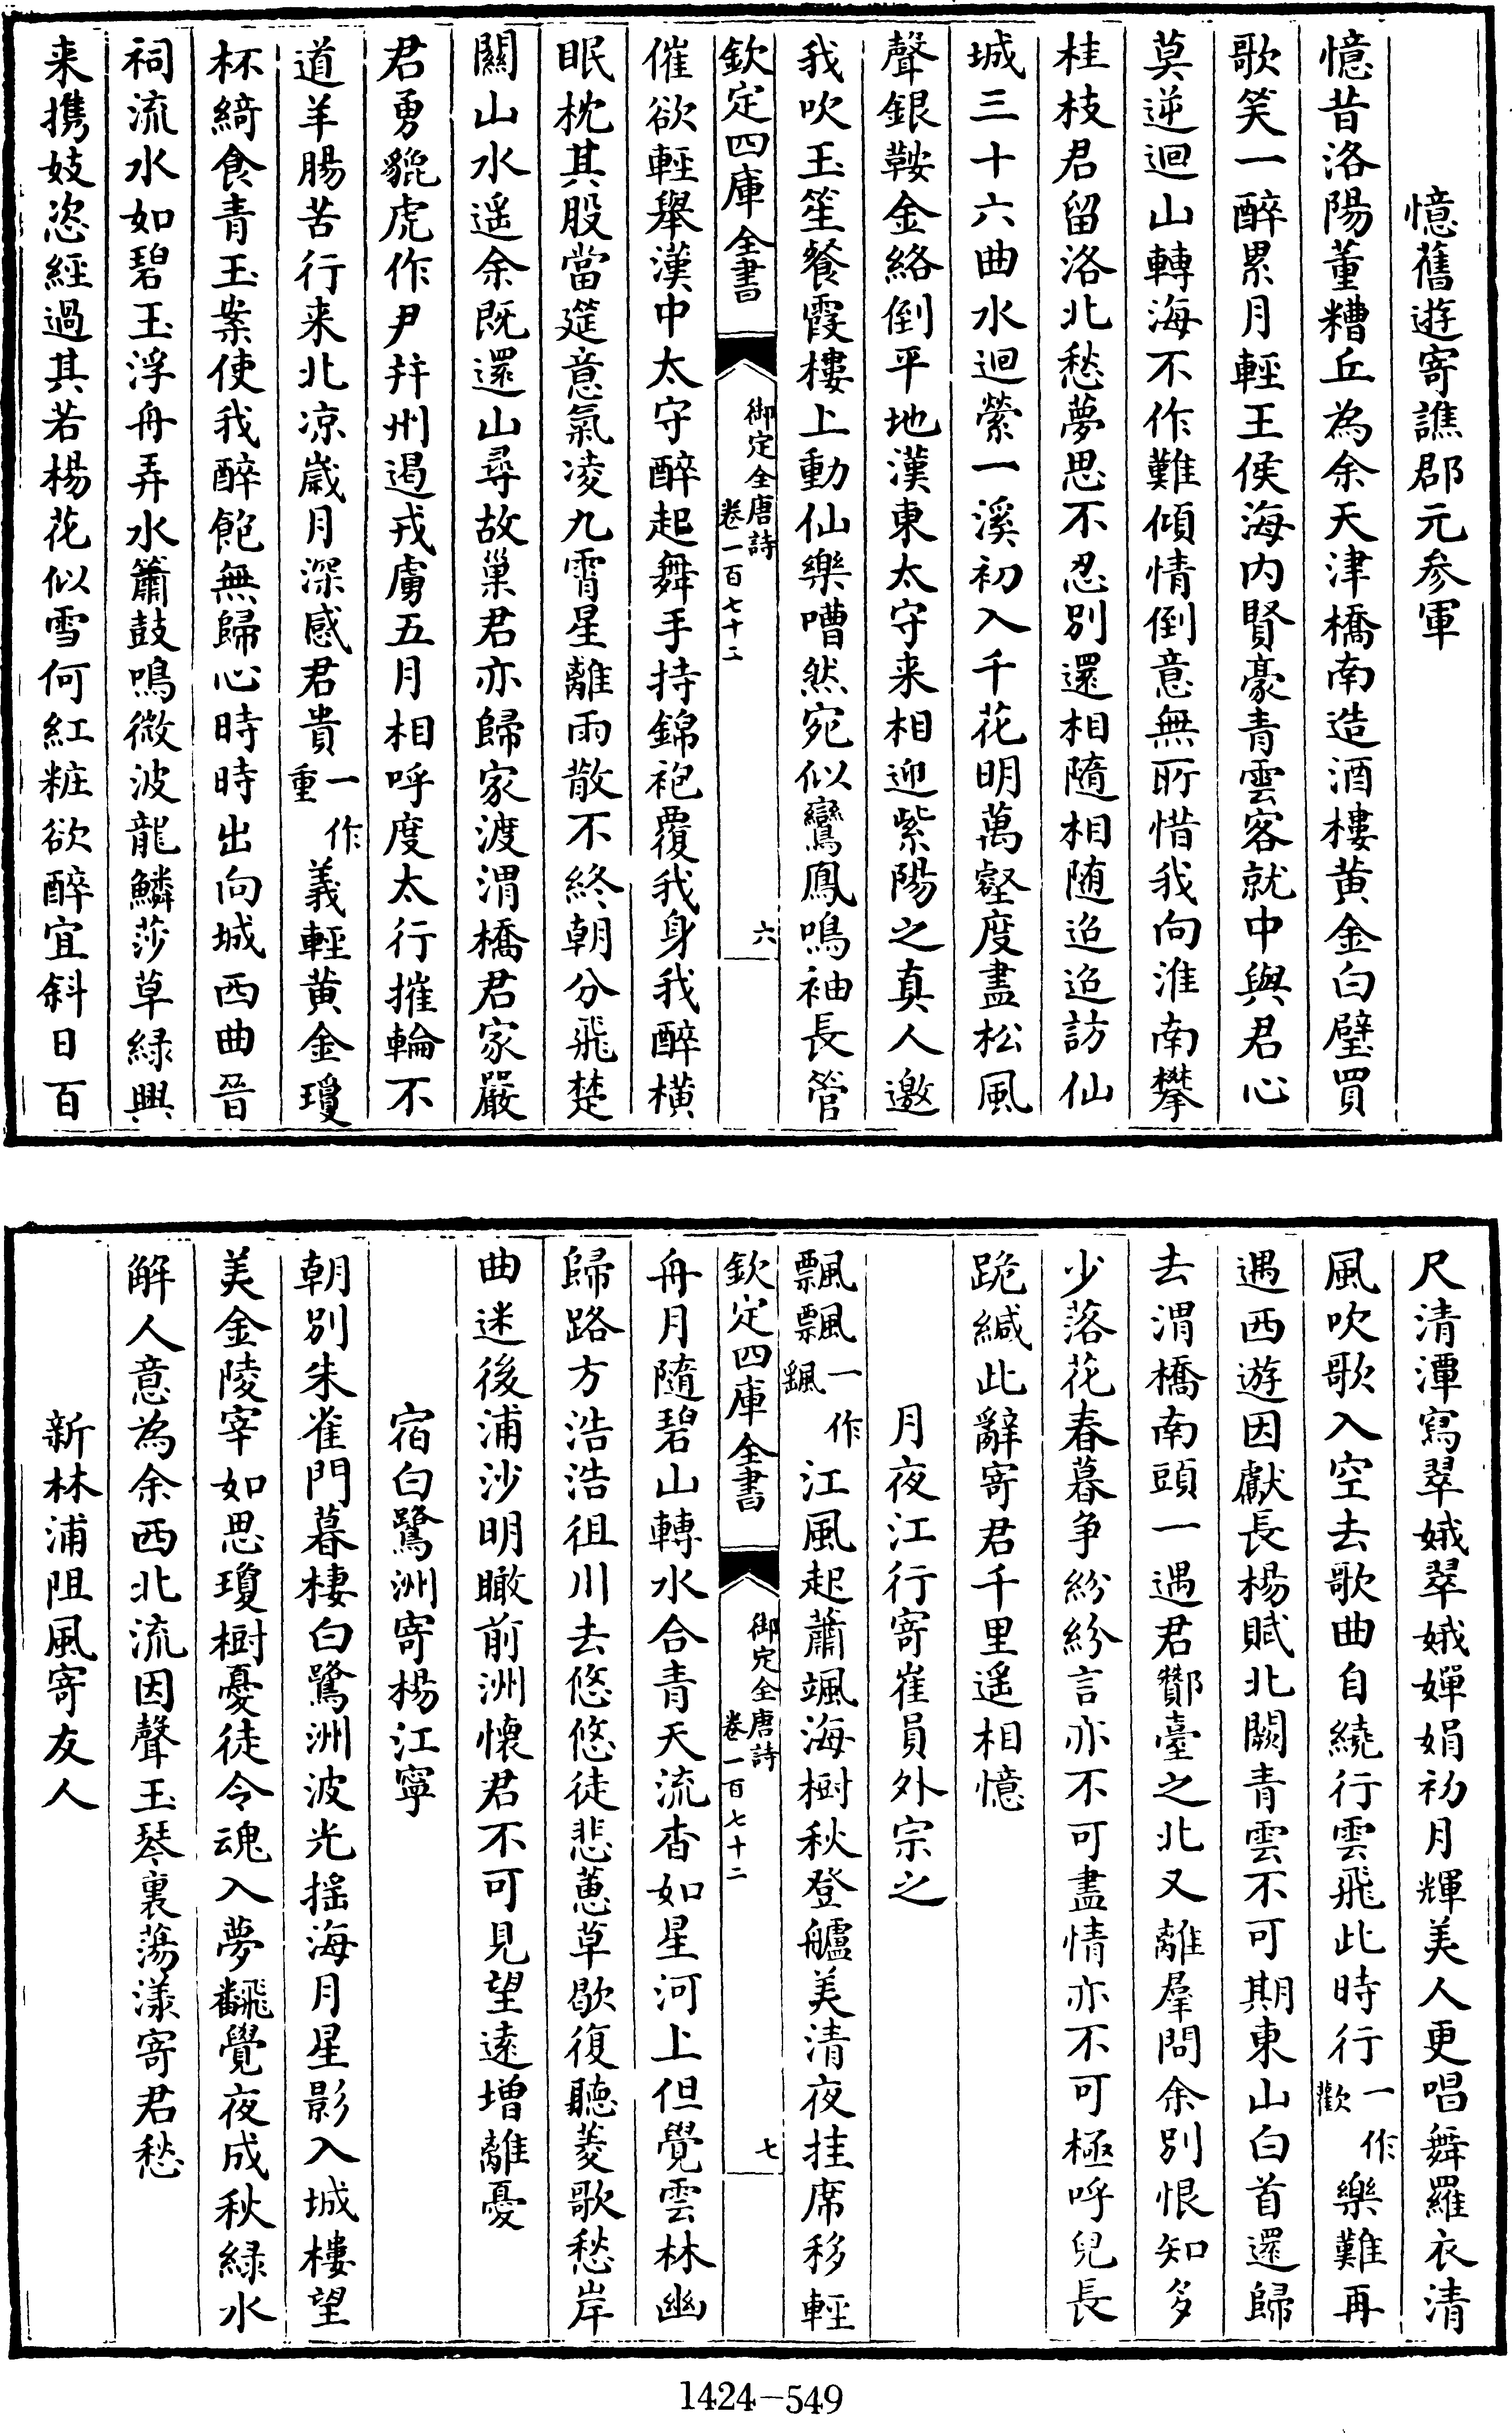 憶舊遊寄譙郡元參軍
憶昔洛陽董糟丘為余天津橋南造酒樓黄金白璧買
歌笑一醉累月輕王侯海内賢豪青雲客就中與君心
莫逆迴山轉海不作難傾情倒意無所惜我向淮南攀
桂枝君留洛北愁夢思不忍别還相隨相随迢迢訪仙
城三十六曲水迴縈一溪初入千花明萬壑度盡松風
聲銀鞍金絡倒平地漢東太守来相迎紫陽之真人邀
我吹玉笙餐霞樓上動仙樂嘈然宛似鸞鳳鳴袖長管
欽定四庫全書 御定全唐詩 卷一百七十二 六
催欲輕舉漢中太守醉起舞手持錦袍覆我身我醉横
眠枕其股當筵意氣凌九霄星離雨散不終朝分飛楚
關山水遥余既還山尋故巢君亦歸家渡渭橋君家嚴
君勇貔虎作尹并州遏戎虜五月相呼度太行摧輪不
道羊腸苦行来北凉嵗月深感君貴一作重義輕黄金瓊
杯綺食青玉案使我醉飽無歸心時時出向城西曲晉
祠流水如碧玉浮舟弄水簫鼓鳴微波龍鱗莎草緑興
来攜妓恣經過其若楊花似雪何紅粧欲醉宜斜日百
尺清潭寫翠娥翠娥嬋娟初月輝美人更唱舞羅衣清
風吹歌入空去歌曲自繞行雲飛此時行一作歡樂難再
遇西遊因獻長楊賦北闕青雲不可期東山白首還歸
去渭橋南頭一遇君酇臺之北又離羣問余别恨知多
少落花春暮争紛紛言亦不可盡情亦不可極呼兒長
跪緘此辭寄君千里遥相憶
月夜江行寄崔員外宗之
飄飄一作颻江風起蕭颯海樹秋登艫美清夜挂席移輕
欽定四庫全書 御定全唐詩 卷一百七十二 七
舟月隨碧山轉水合青天流杳如星河上但覺雲林幽
歸路方浩浩徂川去悠悠徒悲蕙草歇復聽菱歌愁岸
曲迷後浦沙明瞰前洲懷君不可見望逺増離憂
宿白鷺洲寄楊江寧
朝别朱雀門暮棲白鷺洲波光揺海月星影入城樓望
美金陵宰如思瓊樹憂徒令魂入夢飜覺夜成秋緑水
解人意為余西北流因聲玉琴裏蕩漾寄君愁
新林浦阻風寄友人
1424-549